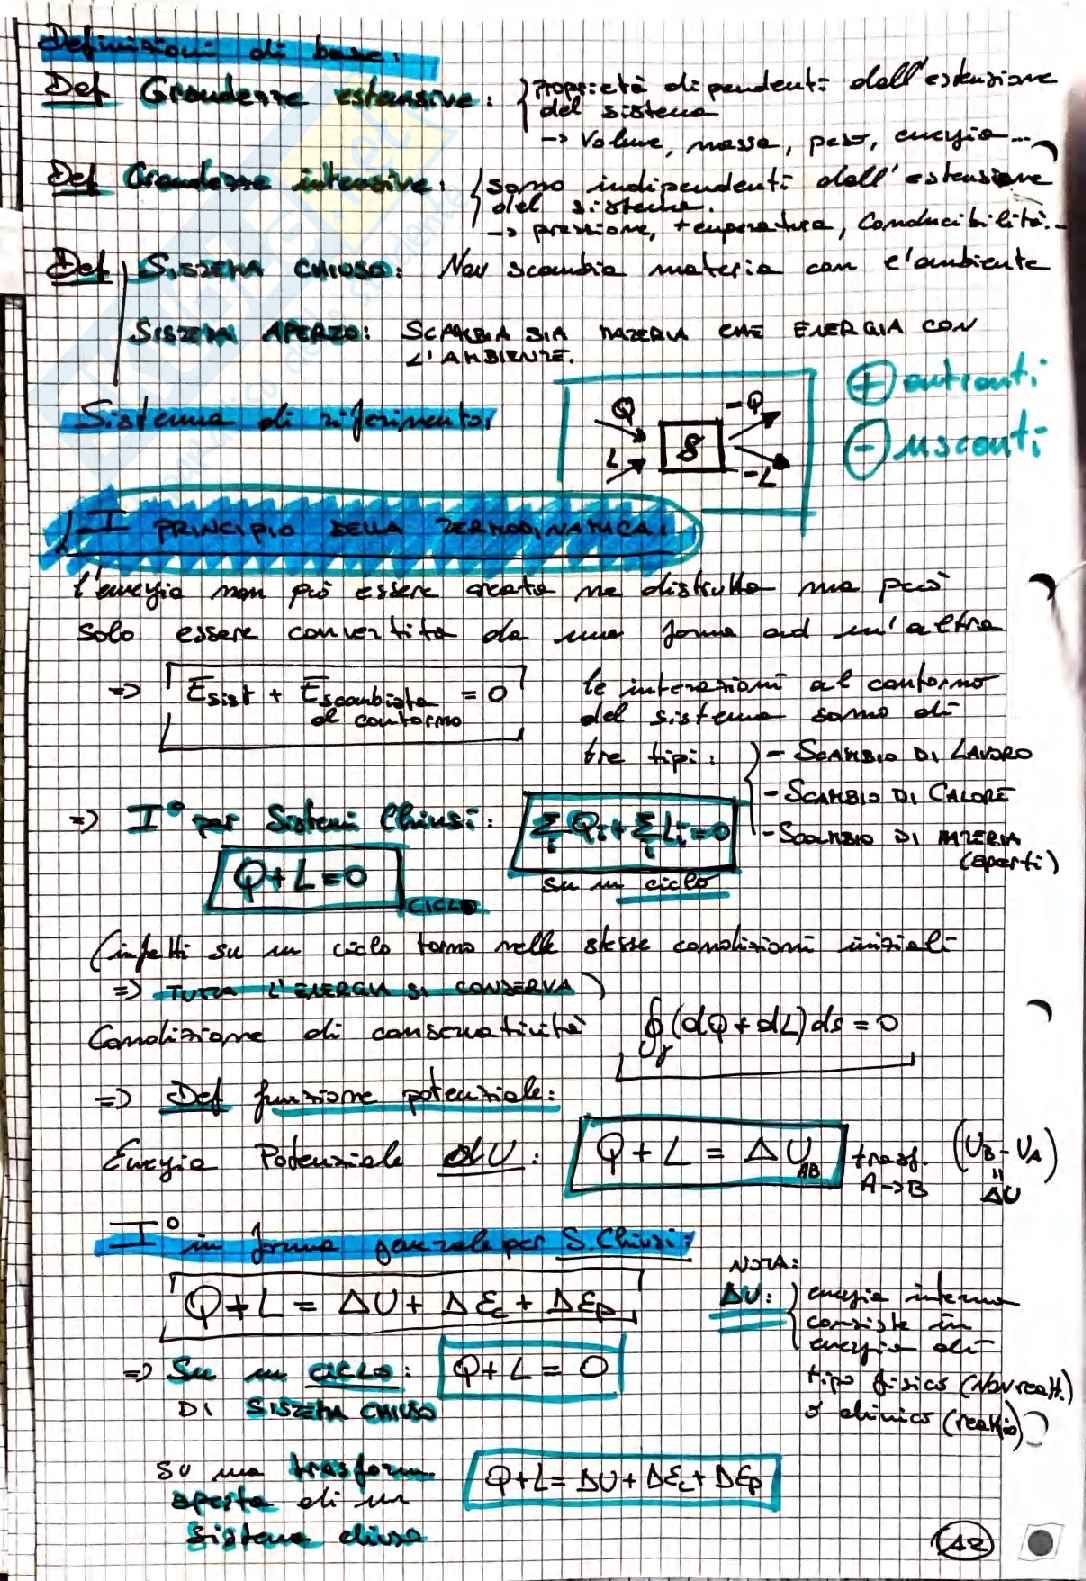 Definizioni di base:
Def Grandezze estensive: Proprietà dipendenti dall'estensione
del sistema
-> Volume, massa, peso, energia...
Def Grandezze intensive: sono indipendenti dall'estensione
del sistema.
-> pressione, temperatura, conducibilità...
Def SISTEMA CHIUSO: Non scambia materia con l'ambiente
SISTEMA APERTO: SCAMBIA SIA MATERIA CHE ENERGIA CON
L'AMBIENTE.
Sistema di riferimento:
Q L S -Q -L
+ entranti
- uscenti
I PRINCIPIO DELLA TERMODINAMICA:
l'energia non può essere creata ne distrutta ma può
solo essere convertita da una forma ad un'altra
=> Esist + Escambiata = 0
al contorno
le interazioni al contorno
del sistema sono di
tre tipi:
- SCAMBIO DI LAVORO
- SCAMBIO DI CALORE
- SCAMBIO DI MATERIA
(aperti)
=> I° per Sistemi Chiusi: Σi Qi + Σi Li = 0
su un ciclo
Q+L=0
CICLO
(infatti su un ciclo torno nelle stesse condizioni iniziali
=> TUTTA L'ENERGIA SI CONSERVA)
Condizione di conservatività ∮γ (dQ+dL)ds=0
=> Def funzione potenziale:
Energia Potenziale dU: Q + L = ΔU AB trasf. A->B (UB - UA)
" ΔU
I° in forma generale per S. Chiusi:
Q+L = ΔU + ΔEc + ΔEp
NOTA:
ΔU: energia interna
consiste in
energia di
tipo fisico (Non reatt.)
o chimico (reattio)
=> Su un CICLO: Q+L = 0
DI SISTEMA CHIUSO
SU una trasform.
aperta di un
sistema chiuso
Q+L = ΔU + ΔEc + ΔEp